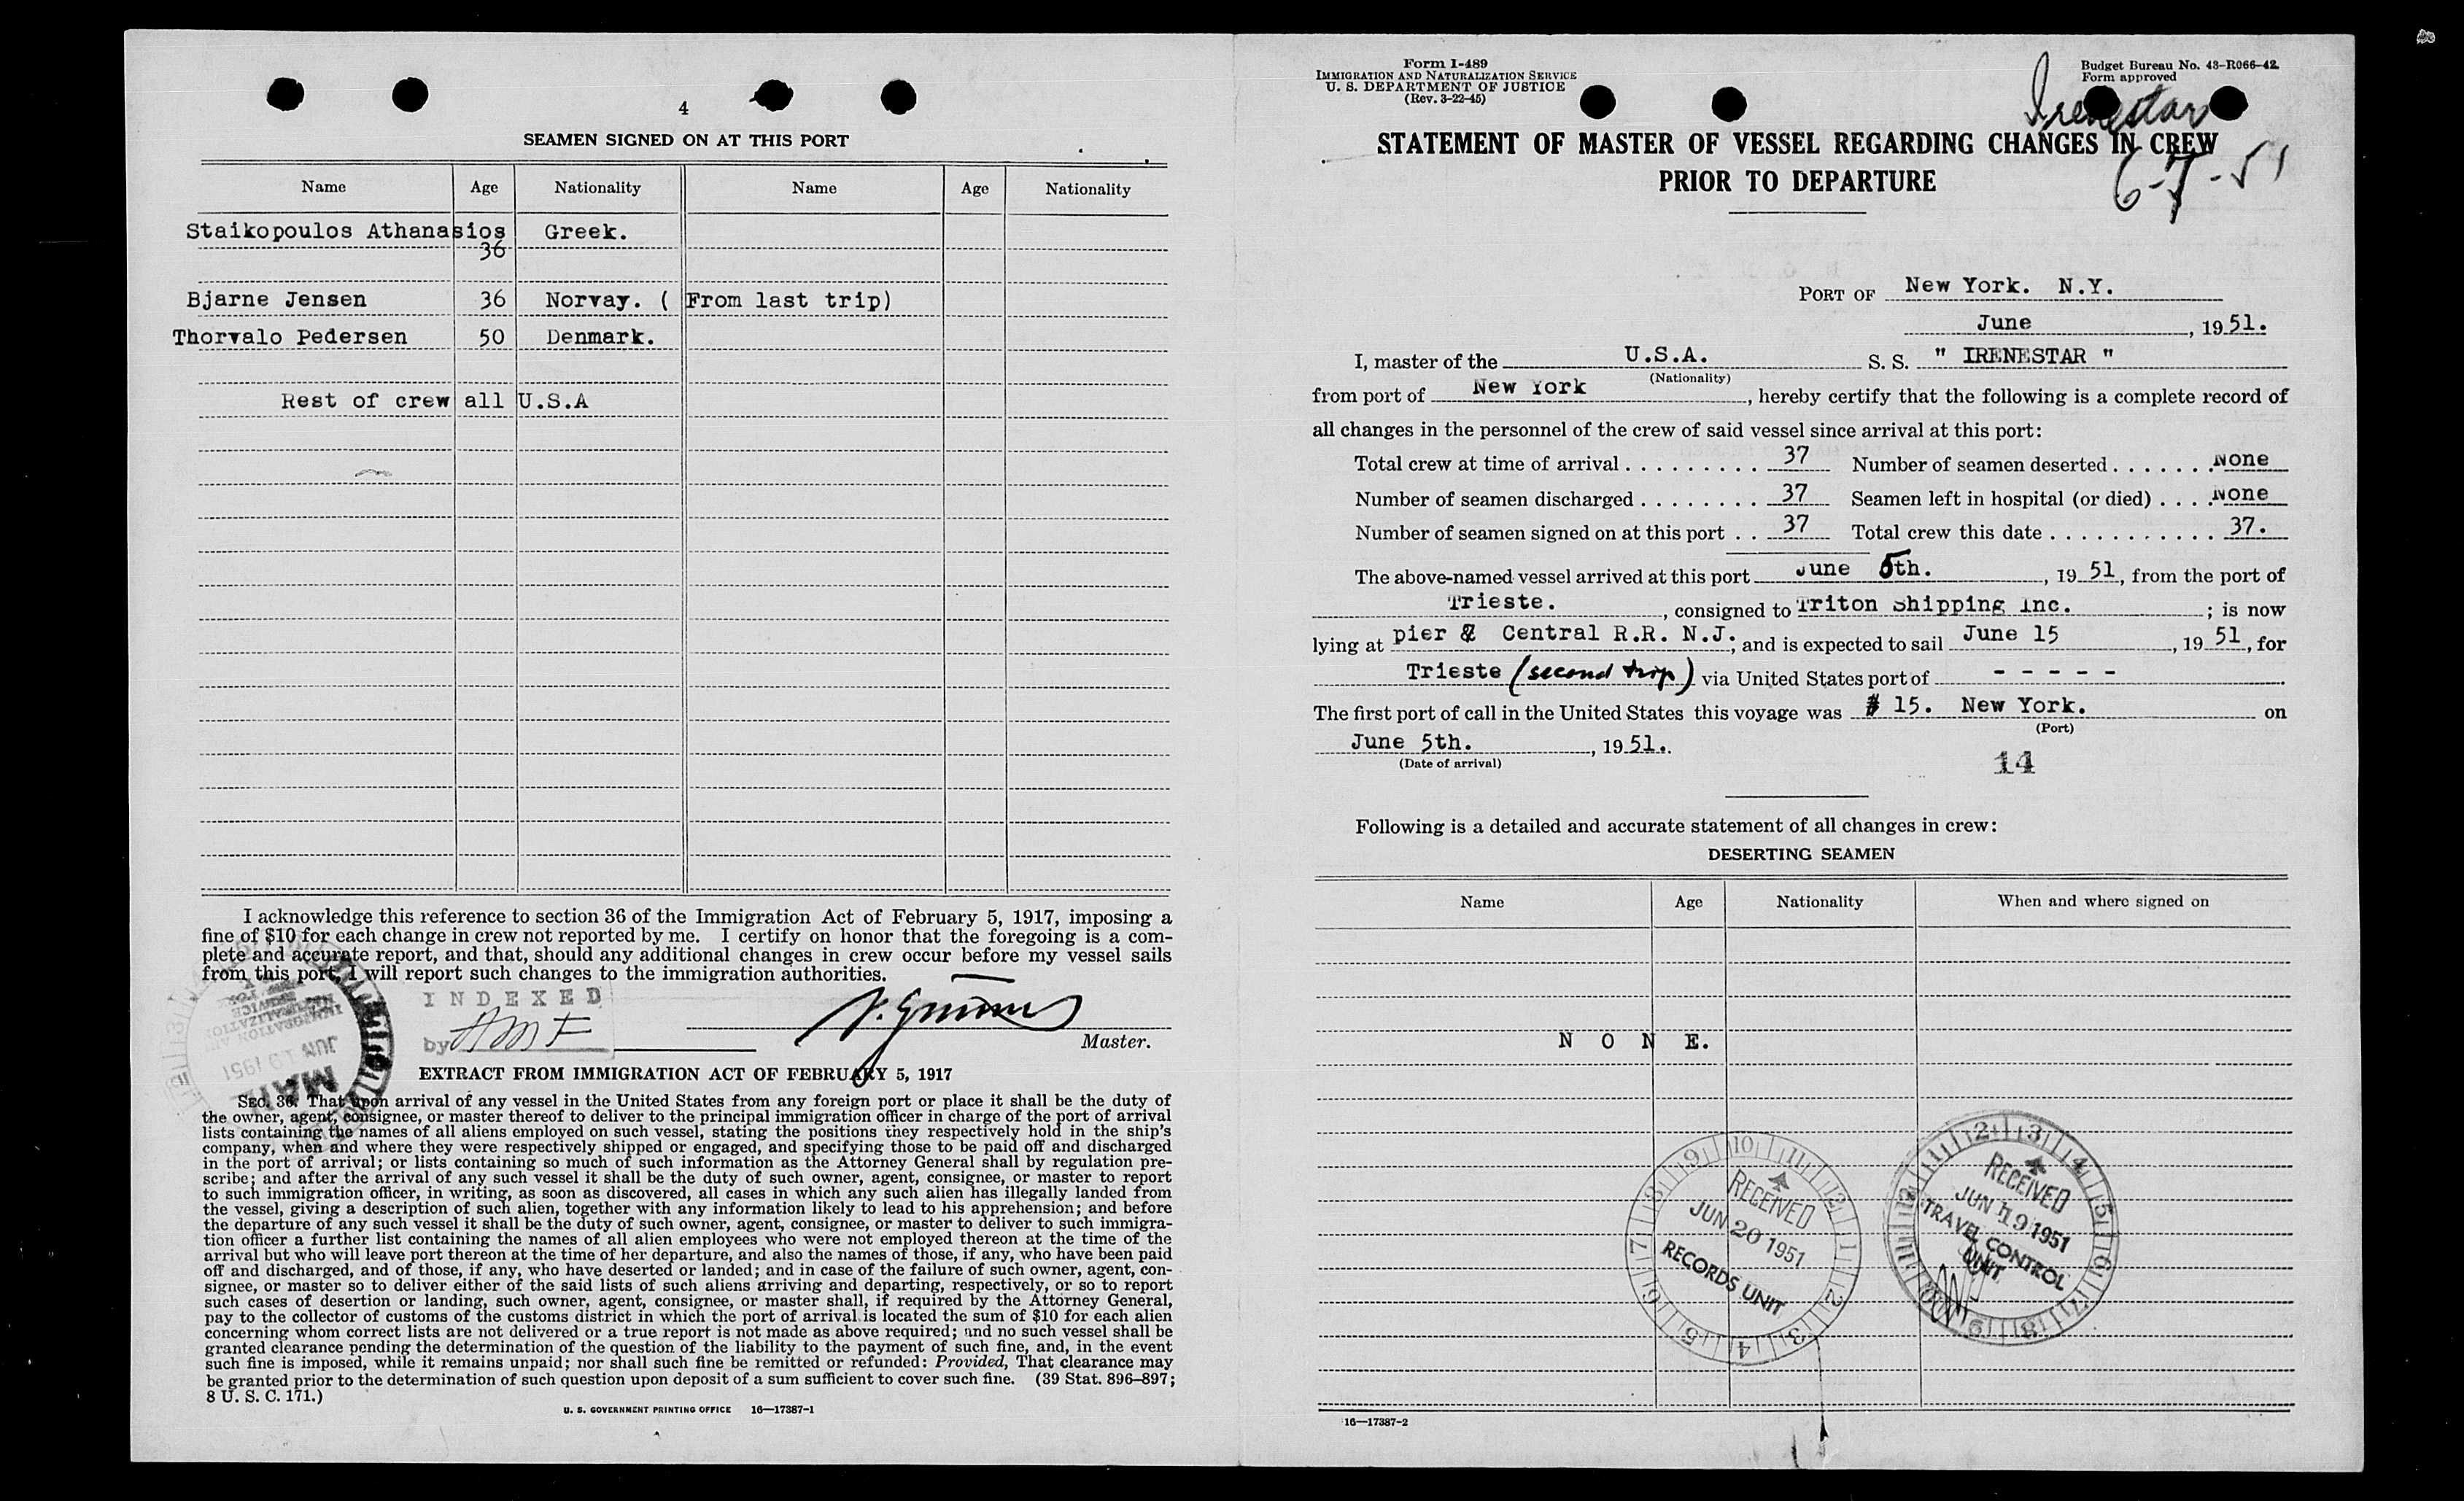 4
SEAMEN SIGNED ON AT THIS PORT
Name Age Nationality Name Age Nationality
Staikopoulos Athanasios Greek.
36
Bjarne Jensen 36 Norvay. ( From last trip)
Thorvalo Pedersen 50 Denmark.
Rest of crew all U.S.A
I acknowledge this reference to section 36 of the Immigration Act of February 5, 1917, imposing a
fine of $10 for each change in crew not reported by me. I certify on honor that the foregoing is a com-
plete and accurate report, and that, should any additional changes in crew occur before my vessel sails
from this port, I will report such changes to the immigration authorities.
INDEXED
by
Master.
MAIL
JUN 19 1951
IMMIGRATION AND
NATURALIZATION
SERVICE
EXTRACT FROM IMMIGRATION ACT OF FEBRUARY 5, 1917
SEC. 36. That upon arrival of any vessel in the United States from any foreign port or place it shall be the duty of
the owner, agent, consignee, or master thereof to deliver to the principal immigration officer in charge of the port of arrival
lists containing the names of all aliens employed on such vessel, stating the positions they respectively hold in the ship's
company, when and where they were respectively shipped or engaged, and specifying those to be paid off and discharged
in the port of arrival; or lists containing so much of such information as the Attorney General shall by regulation pre-
scribe; and after the arrival of any such vessel it shall be the duty of such owner, agent, consignee, or master to report
to such immigration officer, in writing, as soon as discovered, all cases in which any such alien has illegally landed from
the vessel, giving a description of such alien, together with any information likely to lead to his apprehension; and before
the departure of any such vessel it shall be the duty of such owner, agent, consignee, or master to deliver to such immigra-
tion officer a further list containing the names of all alien employees who were not employed thereon at the time of the
arrival but who will leave port thereon at the time of her departure, and also the names of those, if any, who have been paid
off and discharged, and of those, if any, who have deserted or landed; and in case of the failure of such owner, agent, con-
signee, or master so to deliver either of the said lists of such aliens arriving and departing, respectively, or so to report
such cases of desertion or landing, such owner, agent, consignee, or master shall, if required by the Attorney General,
pay to the collector of customs of the customs district in which the port of arrival is located the sum of $10 for each alien
concerning whom correct lists are not delivered or a true report is not made as above required; and no such vessel shall be
granted clearance pending the determination of the question of the liability to the payment of such fine, and, in the event
such fine is imposed, while it remains unpaid; nor shall such fine be remitted or refunded: Provided, That clearance may
be granted prior to the determination of such question upon deposit of a sum sufficient to cover such fine. (39 Stat. 896–897;
8 U. S. C. 171.)
U. S. GOVERNMENT PRINTING OFFICE 16—17387-1
Form I-489
IMMIGRATION AND NATURALIZATION SERVICE
U. S. DEPARTMENT OF JUSTICE
(Rev. 3-22-45)
Budget Bureau No. 43-R066-42
Form approved
Irenestar
STATEMENT OF MASTER OF VESSEL REGARDING CHANGES IN CREW
PRIOR TO DEPARTURE
6-7-51
PORT OF New York. N.Y.
June , 1951.
I, master of the U.S.A. S. S. " IRENESTAR "
(Nationality)
from port of New York , hereby certify that the following is a complete record of
all changes in the personnel of the crew of said vessel since arrival at this port:
Total crew at time of arrival . . . . . . . . . . 37 Number of seamen deserted . . . . . . . None
Number of seamen discharged . . . . . . . . 37 Seamen left in hospital (or died) . . . . None
Number of seamen signed on at this port . . 37 Total crew this date . . . . . . . . . . . 37.
The above-named vessel arrived at this port June 5th. , 19 51, from the port of
Trieste. , consigned to Triton Shipping Inc. ; is now
lying at pier Central R.R. N.J. , and is expected to sail June 15 , 19 51, for
Trieste (second trip) via United States port of - - - - -
The first port of call in the United States this voyage was # 15. New York. on
(Port)
June 5th. , 19 51.
(Date of arrival)
14
Following is a detailed and accurate statement of all changes in crew:
DESERTING SEAMEN
Name Age Nationality When and where signed on
N O N E.
RECEIVED
JUN 20 1951
RECORDS UNIT
RECEIVED
JUN 19 1951
TRAVEL CONTROL
UNIT
16—17387-2